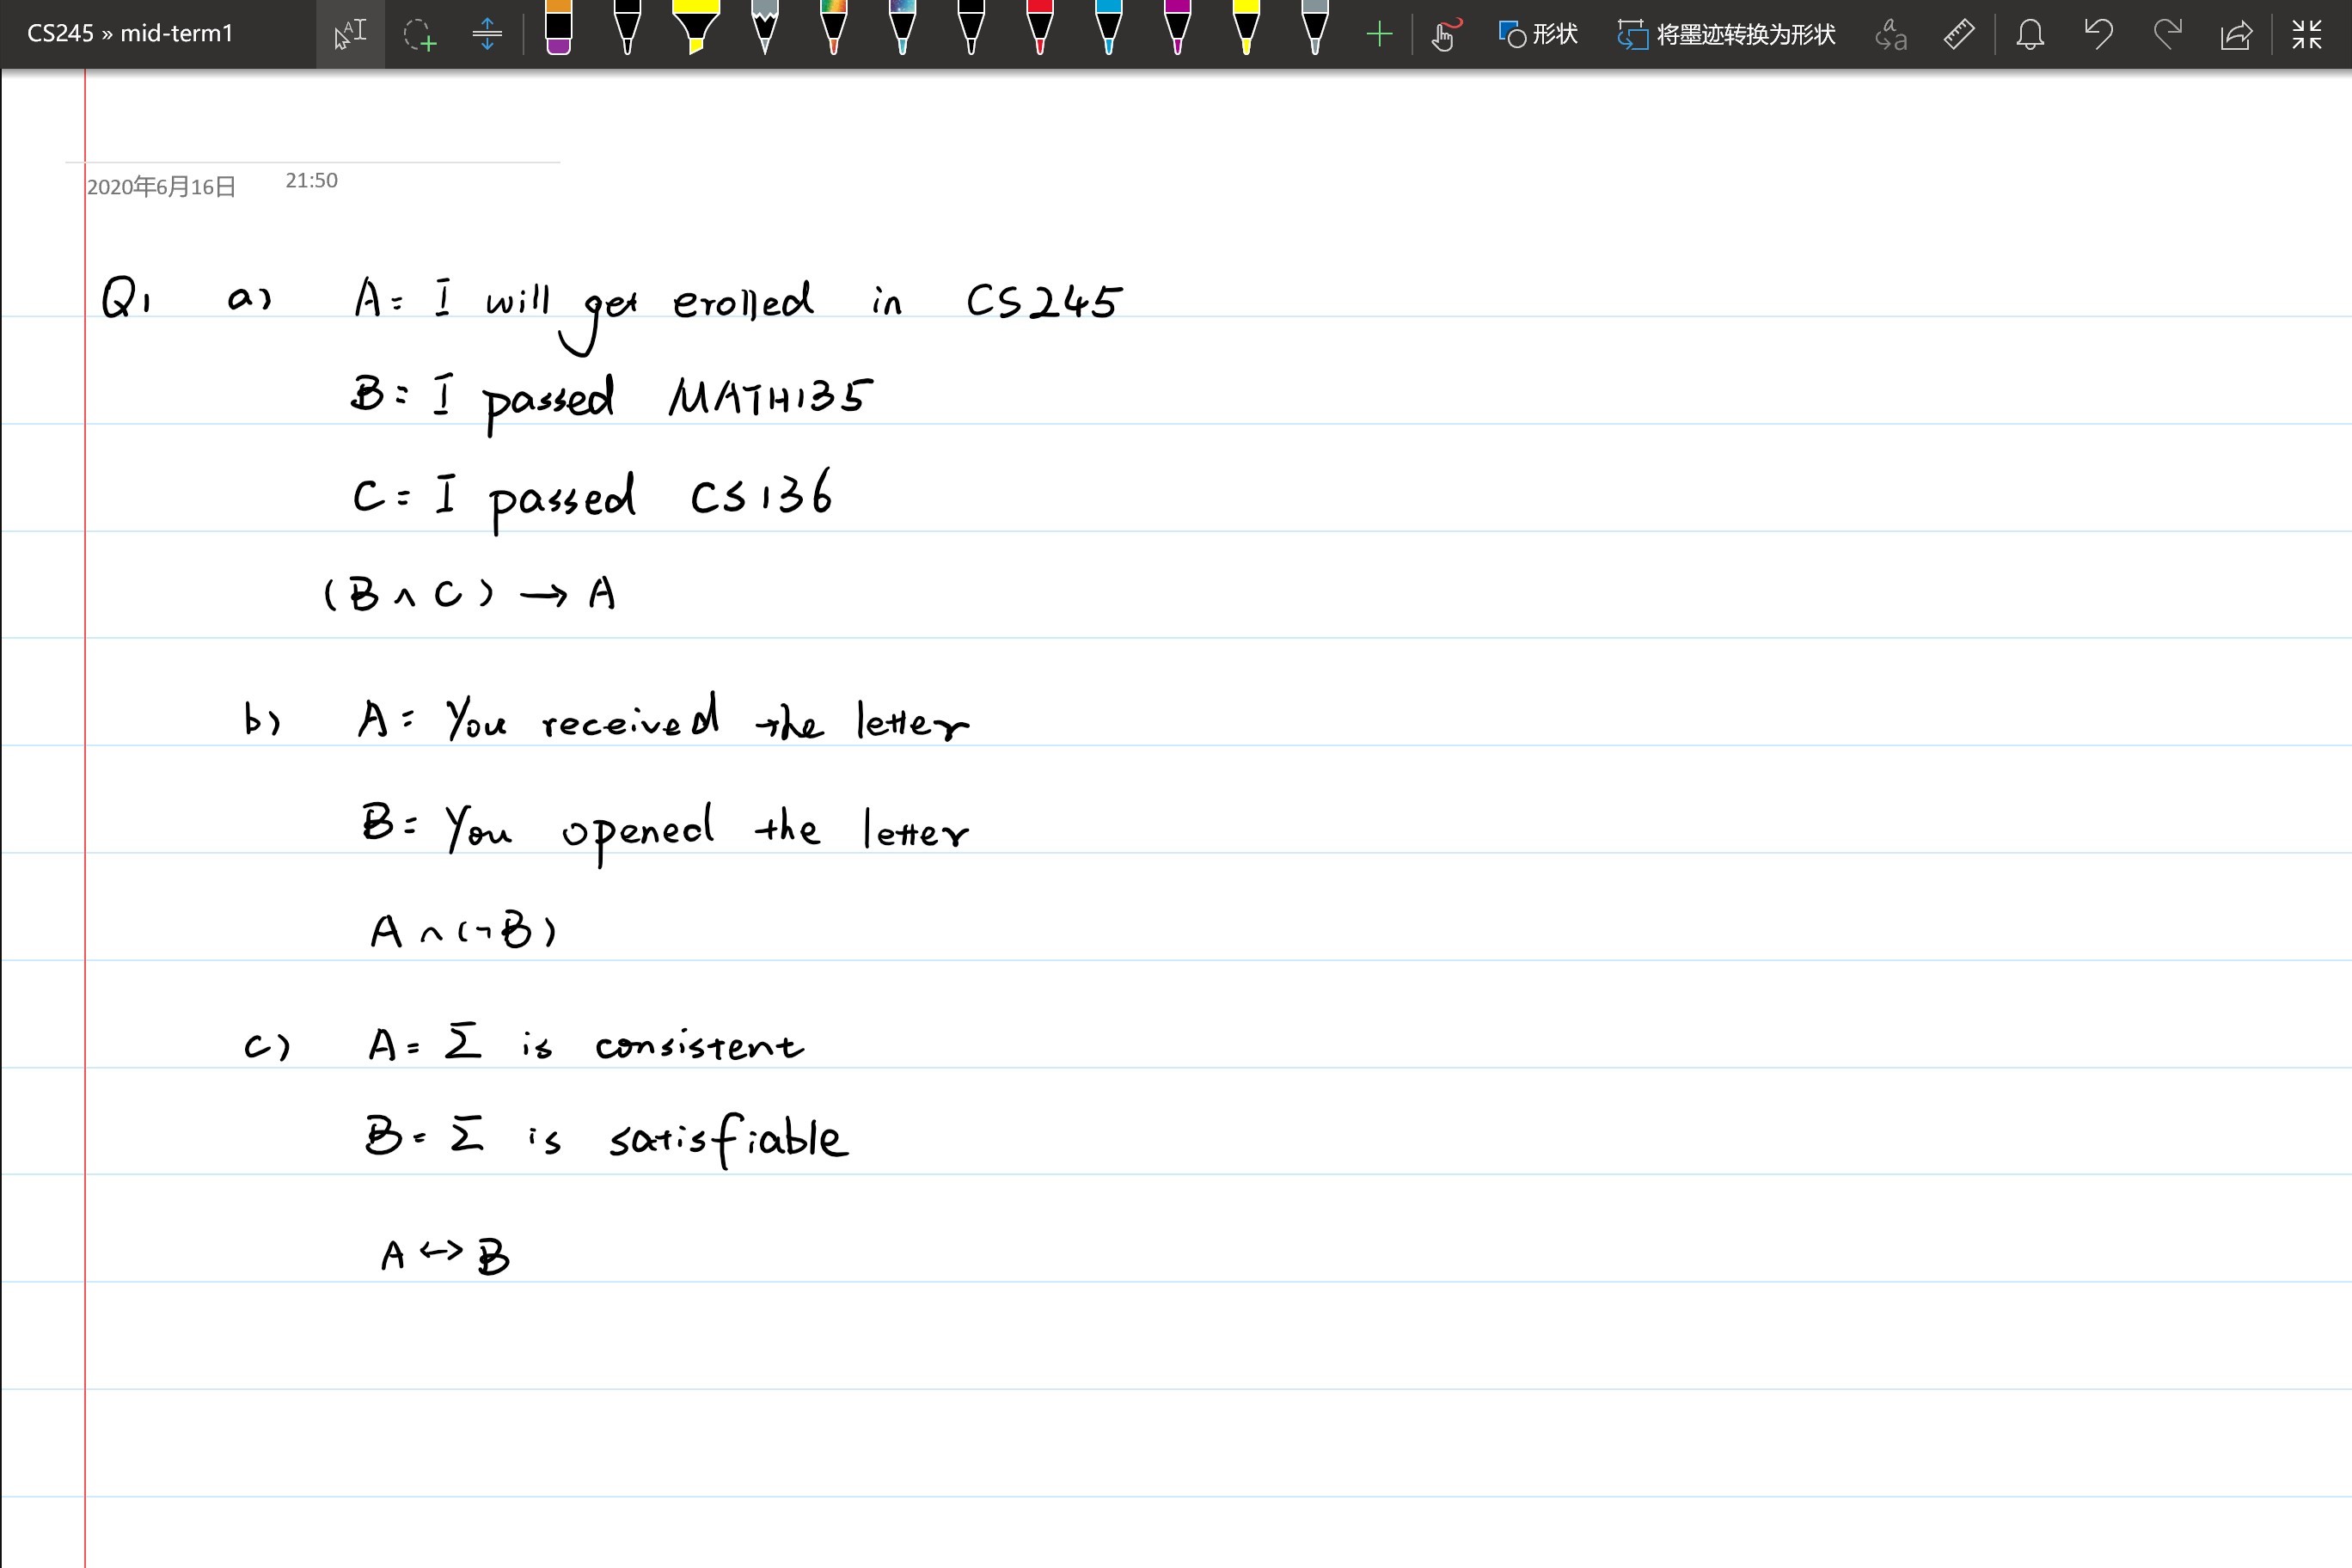 CS245 » mid-term1
形状
将墨迹转换为形状
2020年6月16日 21:50
Q1 a) A = I will get erolled in CS245
B = I passed MATH135
C = I passed CS136
(B ∧ C) → A
b) A = You received the letter
B = You opened the letter
A ∧ (¬B)
c) A = Σ is consistent
B = Σ is satisfiable
A ↔ B